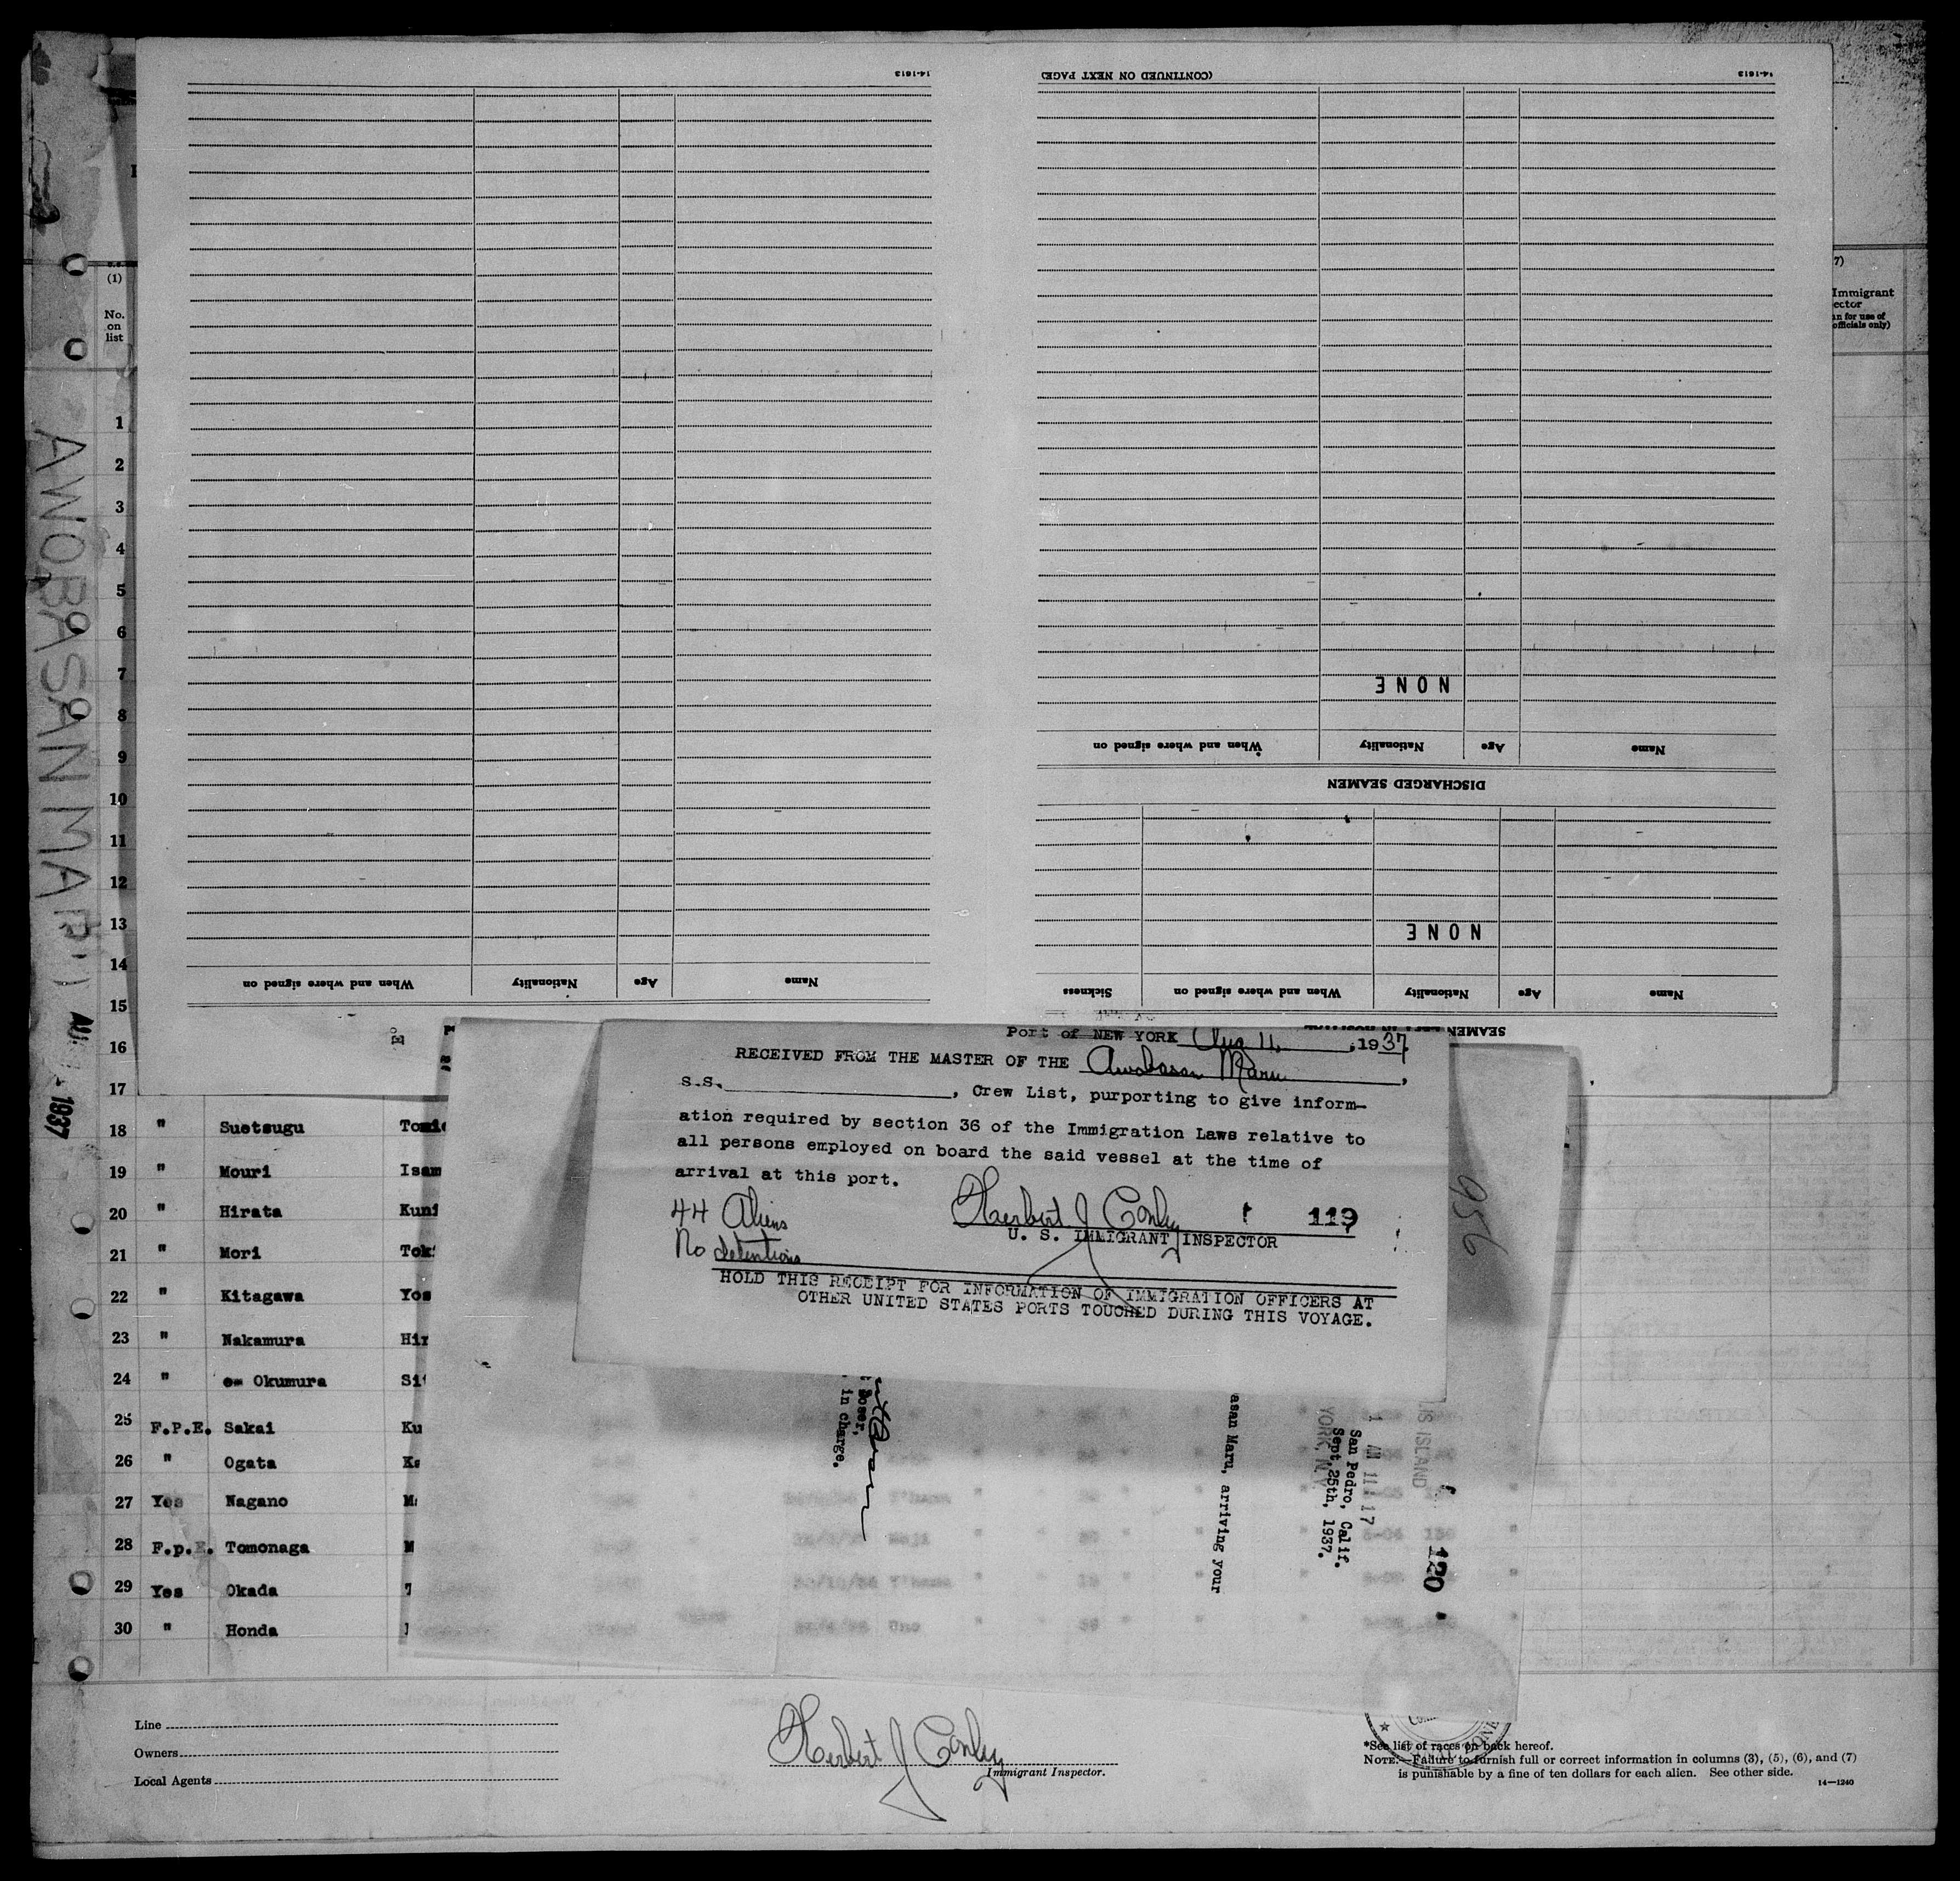 14-1613
(CONTINUED ON NEXT PAGE)
14-1613
NONE
When and where signed on
Nationality
Age
Name
DISCHARGED SEAMEN
NONE
When and where signed on
Nationality
Age
Name
Sickness
When and where signed on
Nationality
Age
Name
SEAMEN
(1)
No.
on
list
7)
Immigrant
ector
officials only)
AWOBASAN MARU
1937
1
2
3
4
5
6
7
8
9
10
11
12
13
14
15
16
17
18 " Suetsugu
19 " Mouri Isam
20 " Hirata Kuni
21 " Mori
22 " Kitagawa Yos
23 " Nakamura Hir
24 " Okumura
25 F.P.E. Sakai Ku
26 " Ogata
27 Yes Nagano
28 F.p.E. Tomonaga M
29 Yes Okada
30 " Honda
Port of NEW YORK Aug 11, 1937
RECEIVED FROM THE MASTER OF THE Awobasan Maru,
S.S. , Crew List, purporting to give inform-
ation required by section 36 of the Immigration Laws relative to
all persons employed on board the said vessel at the time of
arrival at this port.
44 Aliens
No detentions
Herbert J Conley
119
U. S. IMMIGRANT INSPECTOR
HOLD THIS RECEIPT FOR INFORMATION OF IMMIGRATION OFFICERS AT
OTHER UNITED STATES PORTS TOUCHED DURING THIS VOYAGE.
956
120
IS ISLAND
11 17
San Pedro, Calif.
Sept. 25th, 1937.
YORK, N.Y.
asan Maru, arriving your
in charge.
Line
Owners
Local Agents
Herbert J Conley
Immigrant Inspector.
*See list of races on back hereof.
NOTE.—Failure to furnish full or correct information in columns (3), (5), (6), and (7)
is punishable by a fine of ten dollars for each alien. See other side.
14—1240